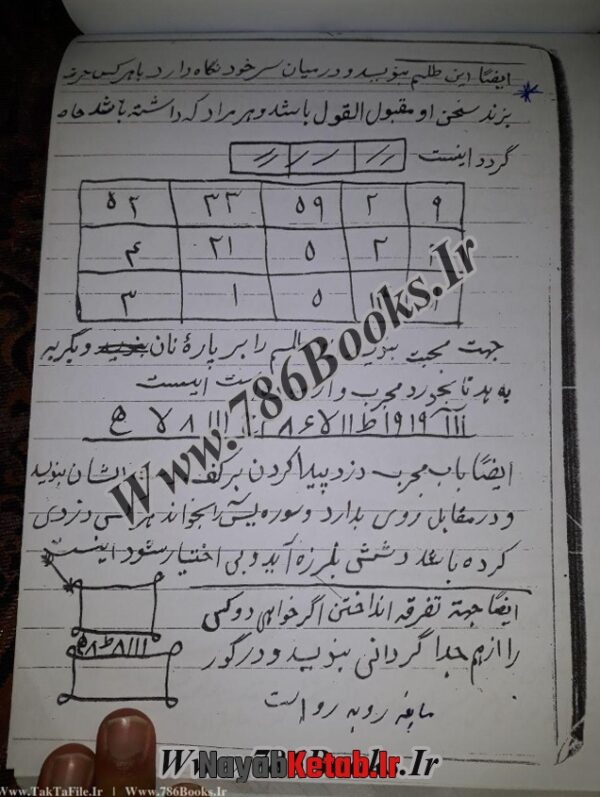 ایضاً این طلسم بنویسد و در میان سر خود نگاه دارد با هر کس حرف
بزند سخن او مقبول القول باشد و هر مراد که داشته باشد
گردد اینست
۹ ۲ ۵۹ ۳۳ ۵۲
۲ ۵ ۲۱ ۴
۵ ۱ ۳
جهت محبت را بر پارهٔ نان و بگربه
بدهد تا بخورد مجرب است اینست
ایضاً باب مجرب دزد پیدا کردن بر کف ایشان بنوید
و در مقابل روی بدارد و سوره یس را بخواند هر کسی دزدی
کرده باشد دستش بلرزه آید و بی اختیار شود اینست
ایضاً جهة تفرقه انداختن اگر خواهی دو کس
را از هم جدا گردانی بنویسد و در گور
روبه رو است
Www.786Books.Ir
Www.786Books.Ir
NayabKetab.Ir
Www.TakTaFile.Ir | Www.786Books.Ir